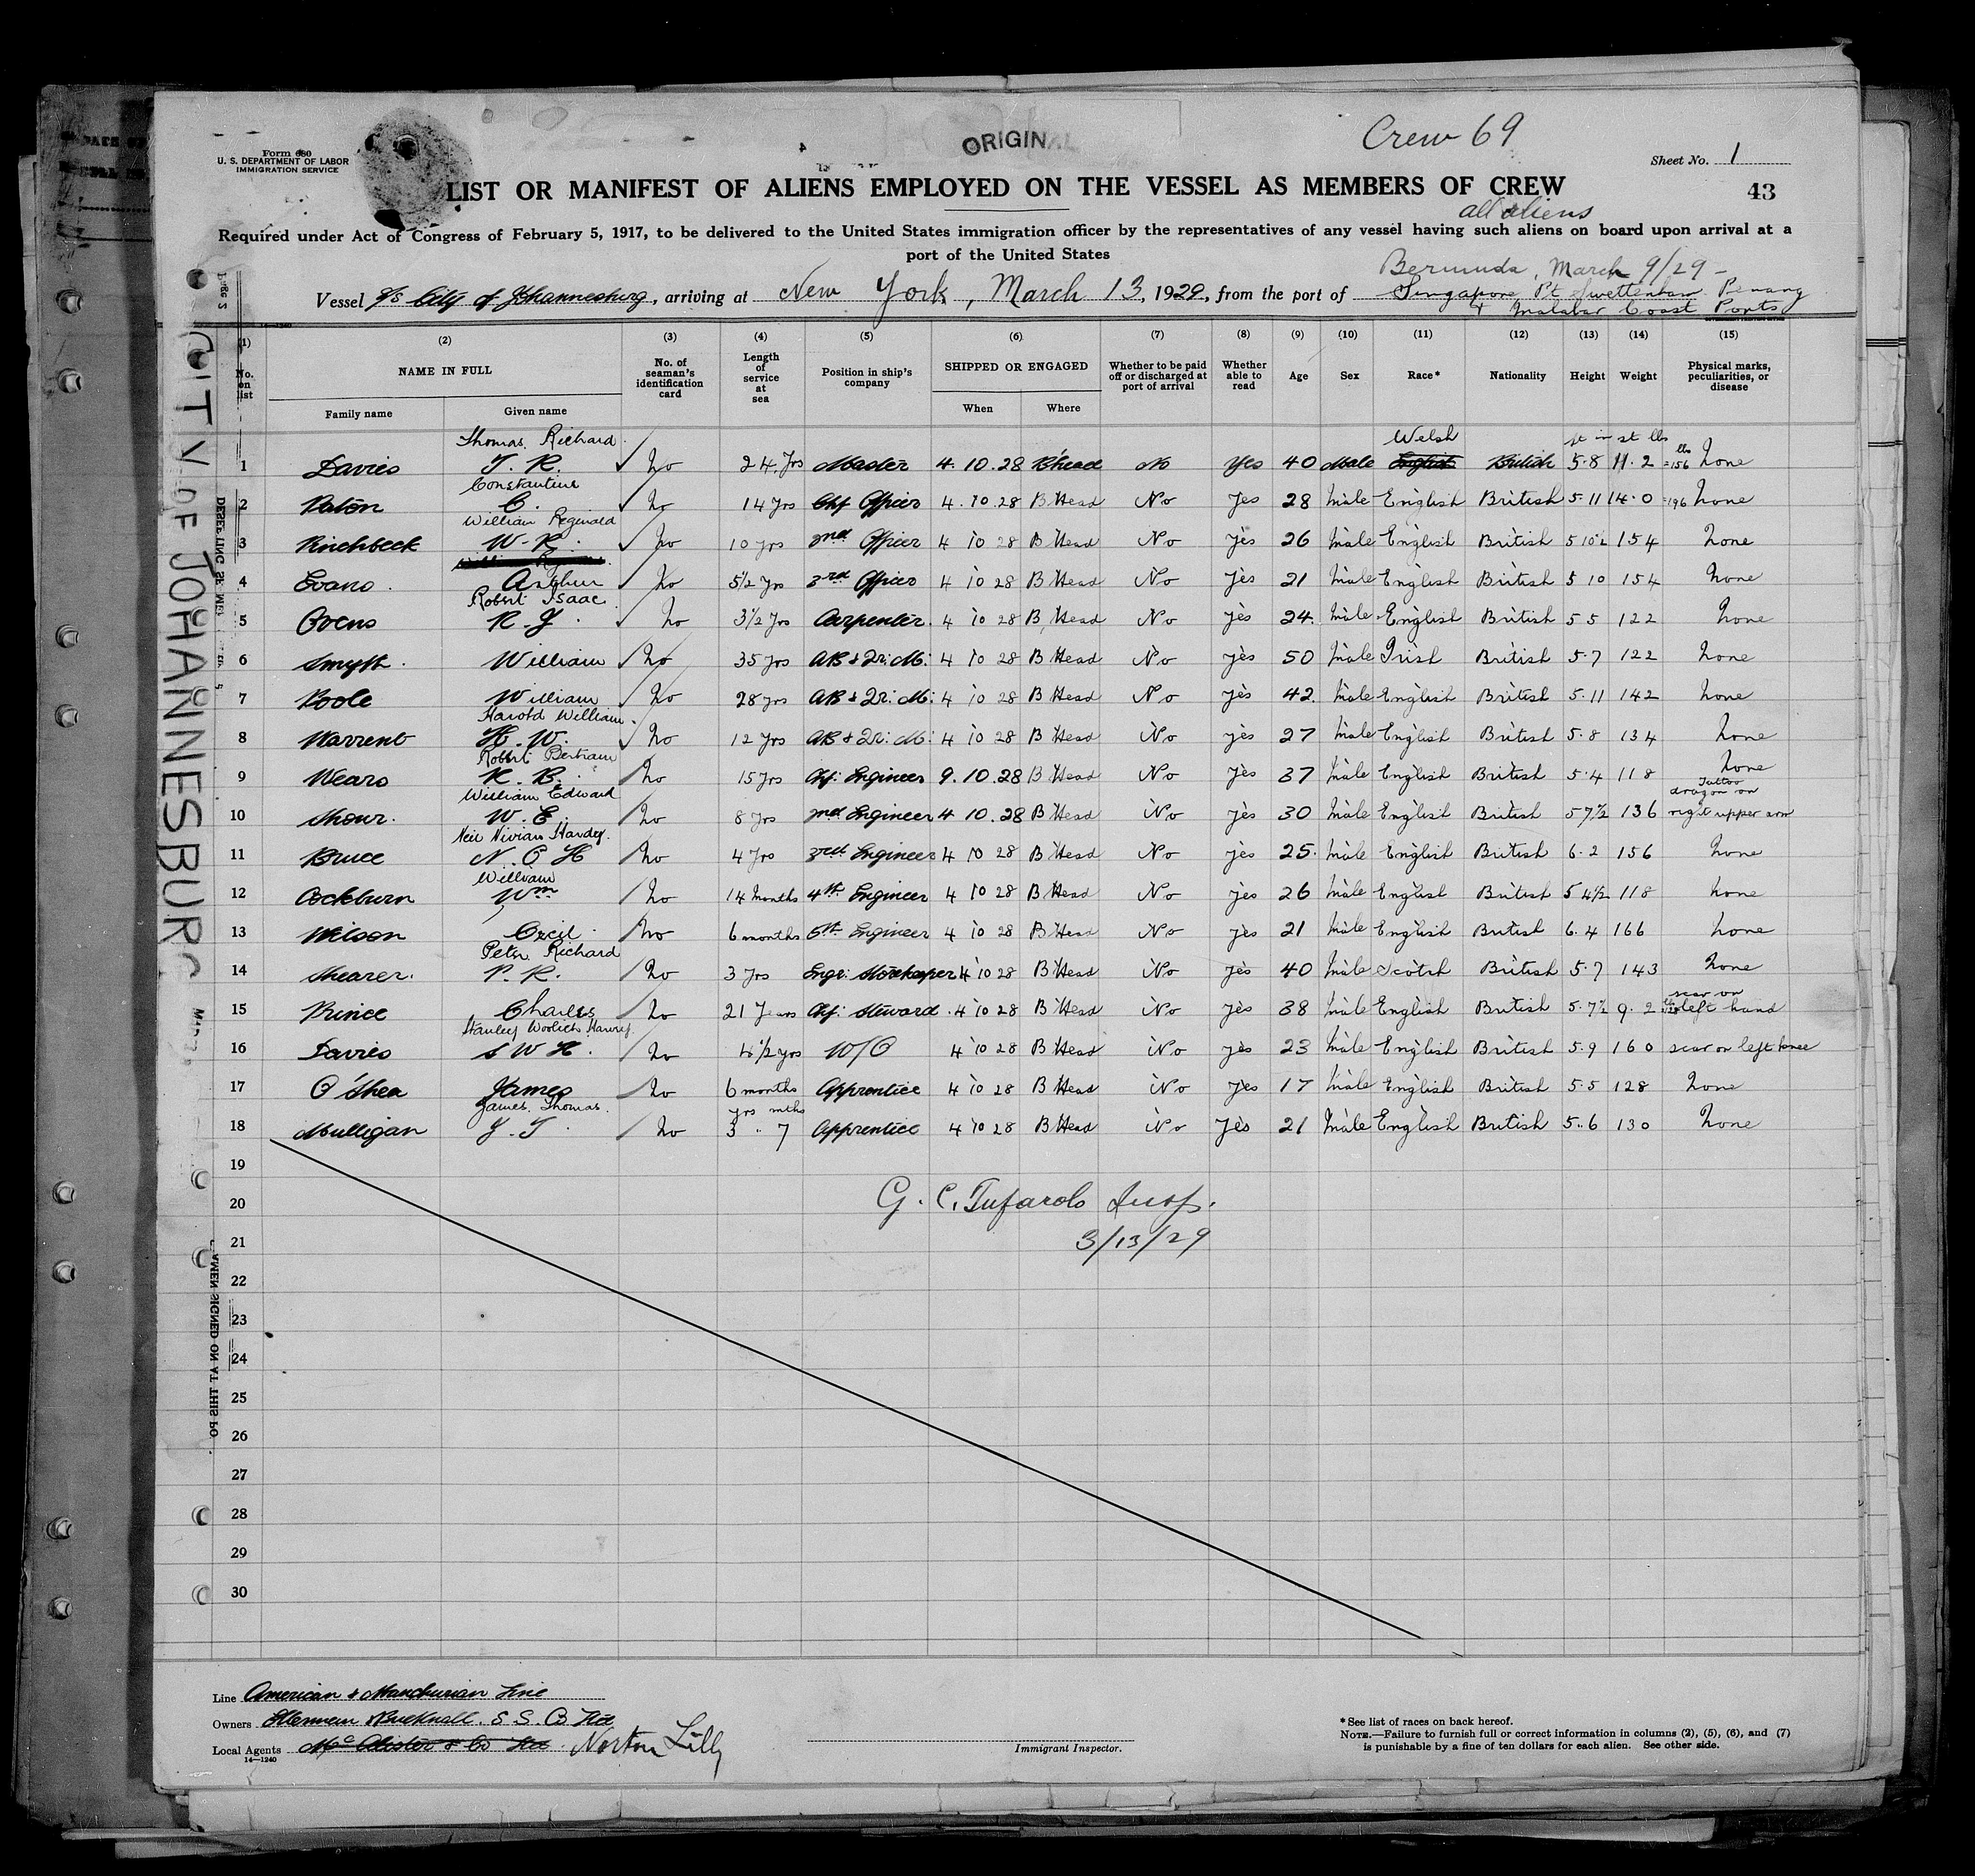 ORIGINAL
Crew 69
Form 680
U. S. DEPARTMENT OF LABOR
IMMIGRATION SERVICE
Sheet No. 1
LIST OR MANIFEST OF ALIENS EMPLOYED ON THE VESSEL AS MEMBERS OF CREW
43
all aliens
Required under Act of Congress of February 5, 1917, to be delivered to the United States immigration officer by the representatives of any vessel having such aliens on board upon arrival at a
port of the United States
Bermuda, March 9/29 -
Vessel S/s City of Johannesburg, arriving at New York, March 13, 1929, from the port of Singapore Pt Swettenham Penang
& Malabar Coast Ports
14-1240
(1) (2) (3) (4) (5) (6) (7) (8) (9) (10) (11) (12) (13) (14) (15)
No. on list NAME IN FULL No. of seaman's identification card Length of service at sea Position in ship's company SHIPPED OR ENGAGED Whether to be paid off or discharged at port of arrival Whether able to read Age Sex Race* Nationality Height Weight Physical marks, peculiarities, or disease
Family name Given name When Where
Thomas Richard Welsh ft in st lbs
1 Davies T. R. No 24 Yrs Master 4.10.28 B'head No Yes 40 Male English British 5.8 11.2 =156 lbs None
Constantine
2 Paton C. No 14 yrs Chf Officer 4.10.28 B'Head No yes 28 Male English British 5.11 14.0 =196 None
William Reginald
3 Pinchbeck W. R. No 10 yrs 2nd Officer 4 10 28 B'Head No yes 26 Male English British 5 10½ 154 None
4 Evans Arthur No 5½ Yrs 3rd Officer 4 10 28 B'Head No yes 21 Male English British 5 10 154 None
Robert Isaac
5 Owens R. I. No 3½ Yrs Carpenter 4 10 28 B'Head No yes 24 Male English British 5 5 122 None
6 Smyth William No 35 yrs AB & Qr: M: 4 10 28 B'Head No yes 50 Male Irish British 5.7 122 None
7 Poole William No 28 yrs AB & Qr: M: 4 10 28 B'Head No yes 42 Male English British 5.11 142 None
Harold William
8 Warrent H. W. No 12 Yrs AB & Qr: M: 4 10 28 B'Head No yes 27 Male English British 5.8 134 None
Robert Bertram
9 Mears R. B. No 15 yrs Chf: Engineer 9.10.28 B'Head No yes 37 Male English British 5.4 118 None
William Edward Tattoo dragon on
10 W. E. No 8 yrs 2nd Engineer 4 10.28 B'Head No yes 30 Male English British 5 7½ 136 right upper arm
Neil Vivian Hardey
11 Bruce N. V H No 4 Yrs 3rd Engineer 4 10 28 B'Head No yes 25 Male English British 6.2 156 None
William
12 Cockburn Wm No 14 months 4th Engineer 4 10 28 B'Head No yes 26 Male English British 5 4½ 118 None
13 Wilson Cecil No 6 months 5th Engineer 4 10 28 B'Head No yes 21 Male English British 6.4 166 None
Peter Richard
14 Shearer P. R. No 3 yrs Engr: Storekeeper 4 10 28 B'Head No yes 40 Male Scotsh British 5.7 143 None
scar on
15 Prince Charles No 21 Years Chf: Steward 4 10 28 B'Head No yes 38 Male English British 5.7½ 9.2 left hand
Stanley Harvey
16 Davies S W H No 4½ yrs W/O 4 10 28 B'Head No yes 23 Male English British 5.9 160 scar on left knee
17 O'Shea James No 6 months Apprentice 4 10 28 B'Head No yes 17 Male English British 5.5 128 None
James Thomas yrs mths
18 Mulligan J. T. No 3 .. 7 Apprentice 4 10 28 B'Head No Yes 21 Male English British 5..6 130 None
19
20
G. C. Tufarolo Insp.
21
3/13/29
22
23
24
25
26
27
28
29
30
CITY OF JOHANNESBURG
Line American & Manchurian Line
Owners Ellerman & Bucknall S. S. Co Ltd
Local Agents Norton Lilly
14-1240
Immigrant Inspector.
*See list of races on back hereof.
NOTE.—Failure to furnish full or correct information in columns (2), (5), (6), and (7)
is punishable by a fine of ten dollars for each alien. See other side.